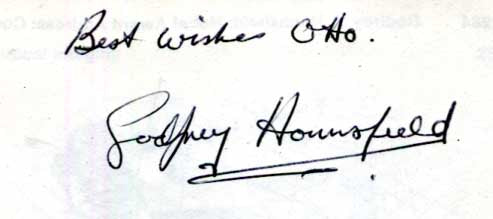 Best wishes Otto.
Godfrey Hounsfield.